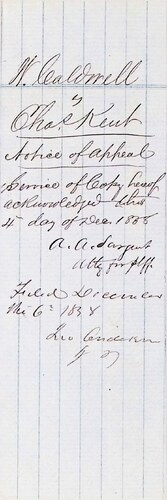 W. Caldwell
vs
Chas Kent
Notice of Appeal
Service of Copy hereof
acknowledged this
4th day of Dec. 1858
A. A. Sargent
Atty for plff.
Filed December
the 6th 1858
Geo Anderson